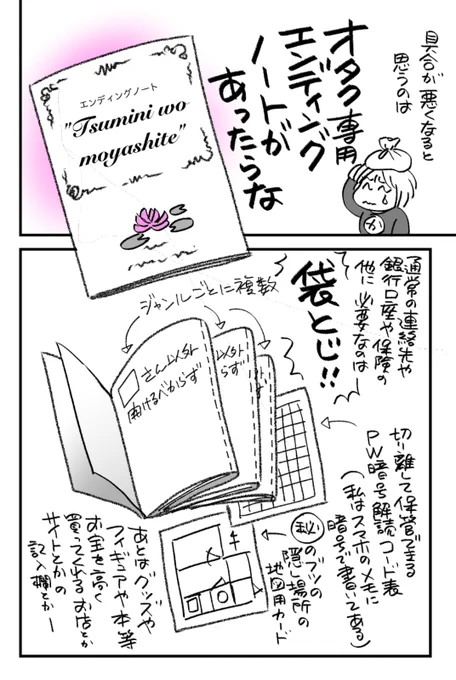 具合が悪くなると
思うのは
オタク専用
エンディング
ノートが
あったらな
か
エンディングノート
"Tsumini wo
moyashite"
通常の連絡先や
銀行口座や保険の
他に必要なのは
袋とじ!!
ジャンルごとに複数
さん以外
開けるべからず
以外
らず
切り離して保管できる
PW暗号解読コード表
(私はスマホのメモに
暗号で書いてある)
㊙のブツの
隠し場所の
地図用カード
あとはグッズや
フィギュアや本等
お宝を高く
買ってくれるお店とか
サイトとかの
記入欄とかー